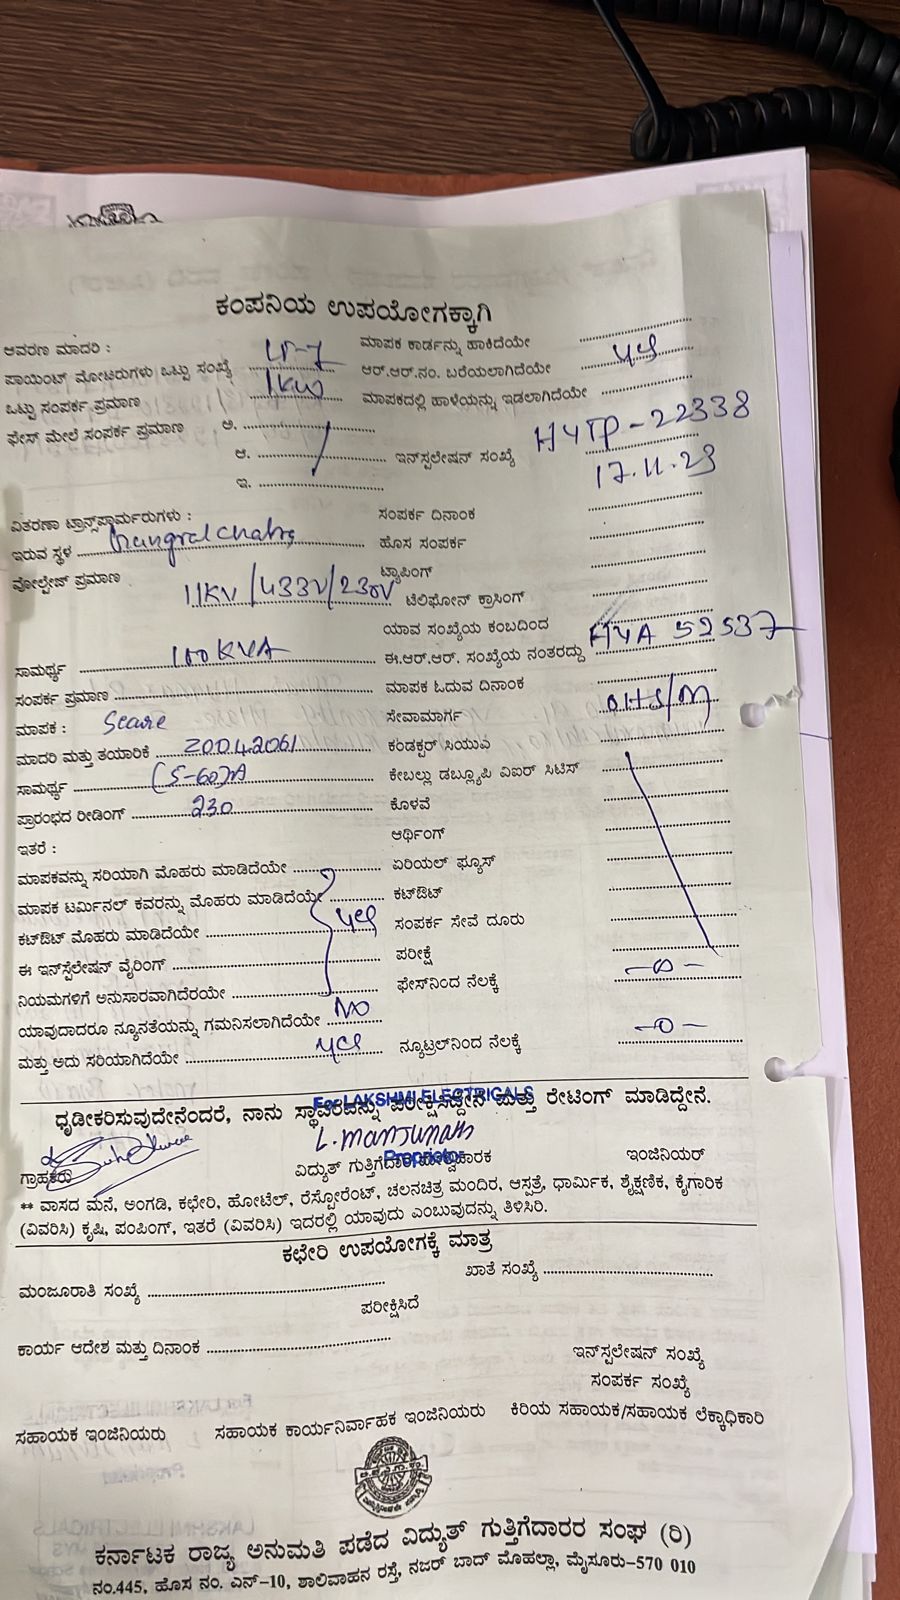 ಕಂಪನಿಯ ಉಪಯೋಗಕ್ಕಾಗಿ
ಆವರಣ ಮಾದರಿ : ಮಾಪಕ ಕಾರ್ಡನ್ನು ಹಾಕಿದೆಯೇ
ಪಾಯಿಂಟ್ ಮೋಟರುಗಳು ಒಟ್ಟು ಸಂಖ್ಯೆ ಆರ್.ಆರ್.ನಂ. ಬರೆಯಲಾಗಿದೆಯೇ yes
ಒಟ್ಟು ಸಂಪರ್ಕ ಪ್ರಮಾಣ 1KW ಮಾಪಕದಲ್ಲಿ ಹಾಳೆಯನ್ನು ಇಡಲಾಗಿದೆಯೇ
ಫೇಸ್ ಮೇಲೆ ಸಂಪರ್ಕ ಪ್ರಮಾಣ ಅ.
ಆ. ಇನ್‌ಸ್ಪಲೇಷನ್ ಸಂಖ್ಯೆ HYTP-22338
ಇ. 17.11.23
ವಿತರಣಾ ಟ್ರಾನ್ಸ್‌ಫಾರ್ಮರುಗಳು : ಸಂಪರ್ಕ ದಿನಾಂಕ
ಇರುವ ಸ್ಥಳ ಹೊಸ ಸಂಪರ್ಕ
ವೋಲ್ಟೇಜ್ ಪ್ರಮಾಣ 11KV/433V/230V ಟ್ಯಾಪಿಂಗ್
ಟೆಲಿಫೋನ್ ಕ್ರಾಸಿಂಗ್
ಯಾವ ಸಂಖ್ಯೆಯ ಕಂಬದಿಂದ
ಸಾಮರ್ಥ್ಯ 100KVA ಈ.ಆರ್.ಆರ್. ಸಂಖ್ಯೆಯ ನಂತರದ್ದು HYA 52537
ಸಂಪರ್ಕ ಪ್ರಮಾಣ ಮಾಪಕ ಓದುವ ದಿನಾಂಕ
ಮಾಪಕ : ಸೇವಾಮಾರ್ಗ OHS/M
ಮಾದರಿ ಮತ್ತು ತಯಾರಿಕೆ 20042061 ಕಂಡಕ್ಟರ್ ಸಿಯುವ
ಸಾಮರ್ಥ್ಯ (5-60)A ಕೇಬಲ್ಲು ಡಬ್ಲ್ಯೂಪಿ ವಿಐರ್ ಸಿಟಿಸ್
ಪ್ರಾರಂಭದ ರೀಡಿಂಗ್ 230 ಕೊಳವೆ
ಇತರೆ : ಅರ್ಥಿಂಗ್
ಮಾಪಕವನ್ನು ಸರಿಯಾಗಿ ಮೊಹರು ಮಾಡಿದೆಯೇ ಏರಿಯಲ್ ಫ್ಯೂಸ್
ಮಾಪಕ ಟರ್ಮಿನಲ್ ಕವರನ್ನು ಮೊಹರು ಮಾಡಿದೆಯೇ ಕಟ್‌ಔಟ್
ಕಟ್‌ಔಟ್ ಮೊಹರು ಮಾಡಿದೆಯೇ yes ಸಂಪರ್ಕ ಸೇವೆ ದೂರು
ಈ ಇನ್‌ಸ್ಪೆಲೇಷನ್ ವೈರಿಂಗ್ ಪರೀಕ್ಷೆ
ನಿಯಮಗಳಿಗೆ ಅನುಸಾರವಾಗಿದೆರಯೇ ಫೇಸ್‌ನಿಂದ ನೆಲಕ್ಕೆ
ಯಾವುದಾದರೂ ನ್ಯೂನತೆಯನ್ನು ಗಮನಿಸಲಾಗಿದೆಯೇ No
ಮತ್ತು ಅದು ಸರಿಯಾಗಿದೆಯೇ yes ನ್ಯೂಟ್ರಲ್‌ನಿಂದ ನೆಲಕ್ಕೆ -0-
For LAKSHMI ELECTRICALS
ಧೃಡೀಕರಿಸುವುದೇನೆಂದರೆ, ನಾನು ಸ್ಥಾವರವನ್ನು ಪರೀಕ್ಷಿಸಿದ್ದೇನೆ ಮತ್ತು ರೇಟಿಂಗ್ ಮಾಡಿದ್ದೇನೆ.
L. Manjunath
Proprietor
ಗ್ರಾಹಕರು ವಿದ್ಯುತ್ ಗುತ್ತಿಗೆದಾರ ಇಂಜಿನಿಯರ್
** ವಾಸದ ಮನೆ, ಅಂಗಡಿ, ಕಛೇರಿ, ಹೋಟೆಲ್, ರೆಸ್ಟೋರೆಂಟ್, ಚಲನಚಿತ್ರ ಮಂದಿರ, ಆಸ್ಪತ್ರೆ, ಧಾರ್ಮಿಕ, ಶೈಕ್ಷಣಿಕ, ಕೈಗಾರಿಕ
(ವಿವರಿಸಿ) ಕೃಷಿ, ಪಂಪಿಂಗ್, ಇತರೆ (ವಿವರಿಸಿ) ಇದರಲ್ಲಿ ಯಾವುದು ಎಂಬುವುದನ್ನು ತಿಳಿಸಿರಿ.
ಕಛೇರಿ ಉಪಯೋಗಕ್ಕೆ ಮಾತ್ರ
ಮಂಜೂರಾತಿ ಸಂಖ್ಯೆ ಖಾತೆ ಸಂಖ್ಯೆ
ಪರೀಕ್ಷಿಸಿದೆ
ಕಾರ್ಯ ಆದೇಶ ಮತ್ತು ದಿನಾಂಕ
ಇನ್‌ಸ್ಪಲೇಷನ್ ಸಂಖ್ಯೆ
ಸಂಪರ್ಕ ಸಂಖ್ಯೆ
ಸಹಾಯಕ ಇಂಜಿನಿಯರು ಸಹಾಯಕ ಕಾರ್ಯನಿರ್ವಾಹಕ ಇಂಜಿನಿಯರು ಕಿರಿಯ ಸಹಾಯಕ/ಸಹಾಯಕ ಲೆಕ್ಕಾಧಿಕಾರಿ
ಕರ್ನಾಟಕ ರಾಜ್ಯ ಅನುಮತಿ ಪಡೆದ ವಿದ್ಯುತ್ ಗುತ್ತಿಗೆದಾರರ ಸಂಘ (ರಿ)
ನಂ.445, ಹೊಸ ನಂ. ಎನ್-10, ಶಾಲಿವಾಹನ ರಸ್ತೆ, ನಜರ್ ಬಾದ್ ಮೊಹಲ್ಲಾ, ಮೈಸೂರು-570 010